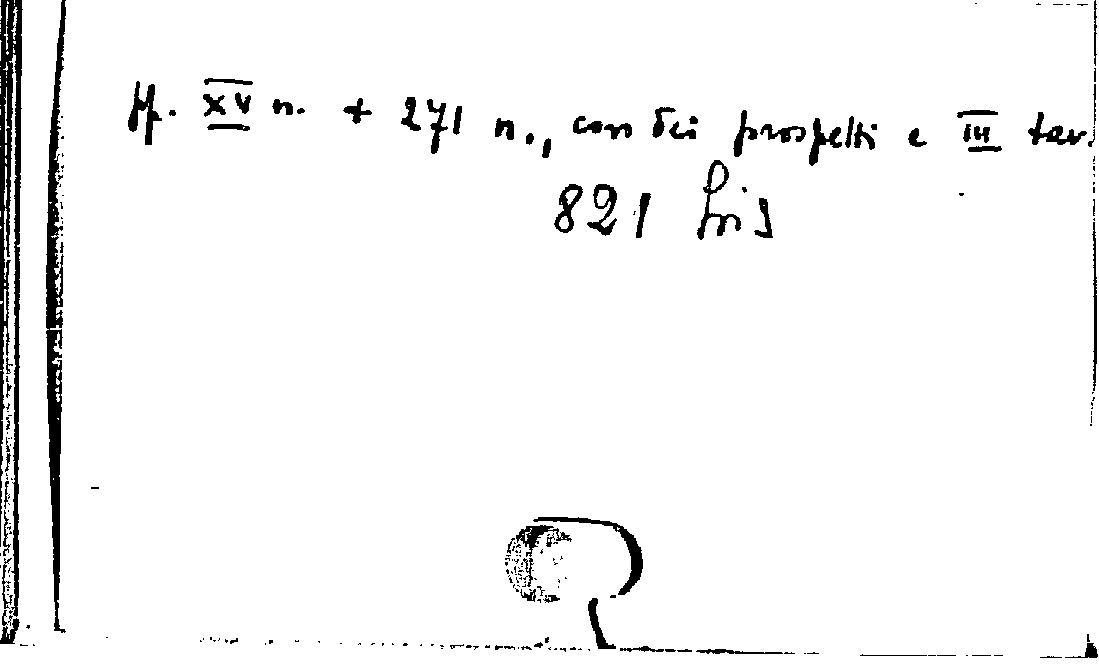 pp. XV n. + 271 n., con dei prospetti e III tav.
821 bis